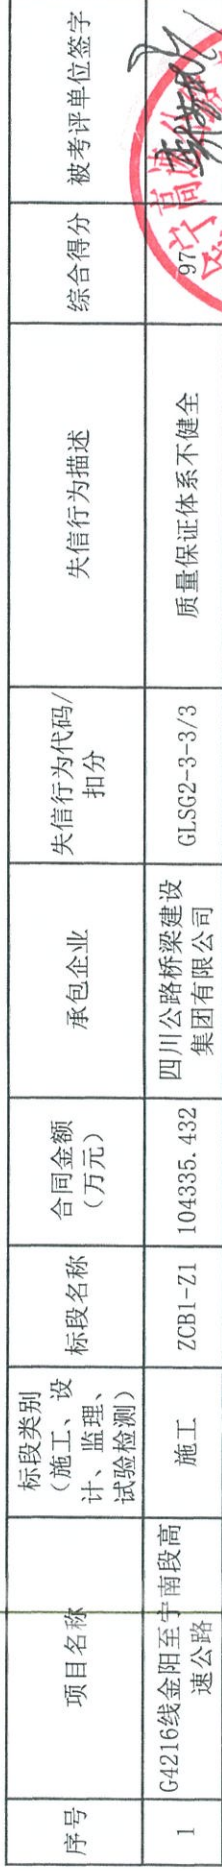 序号
项目名称
标段类别
（施工、设
计、监理、
试验检测）
标段名称
合同金额
（万元）
承包企业
失信行为代码/
扣分
失信行为描述
综合得分
被考评单位签字
1
G4216线金阳至宁南段高
速公路
施工
ZCB1-Z1
104335.432
四川公路桥梁建设
集团有限公司
GLSG2-3-3/3
质量保证体系不健全
97